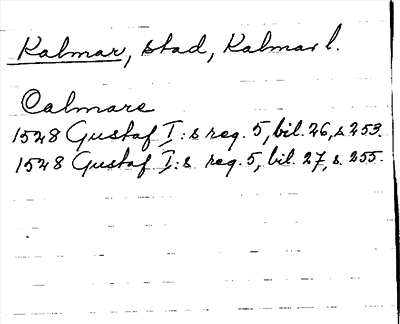 Kalmar, stad, Kalmar l.
Calmare
1528 Gustaf I:s reg. 5, bil. 26, s. 253.
1528 Gustaf I:s reg. 5, bil. 27, s. 255.